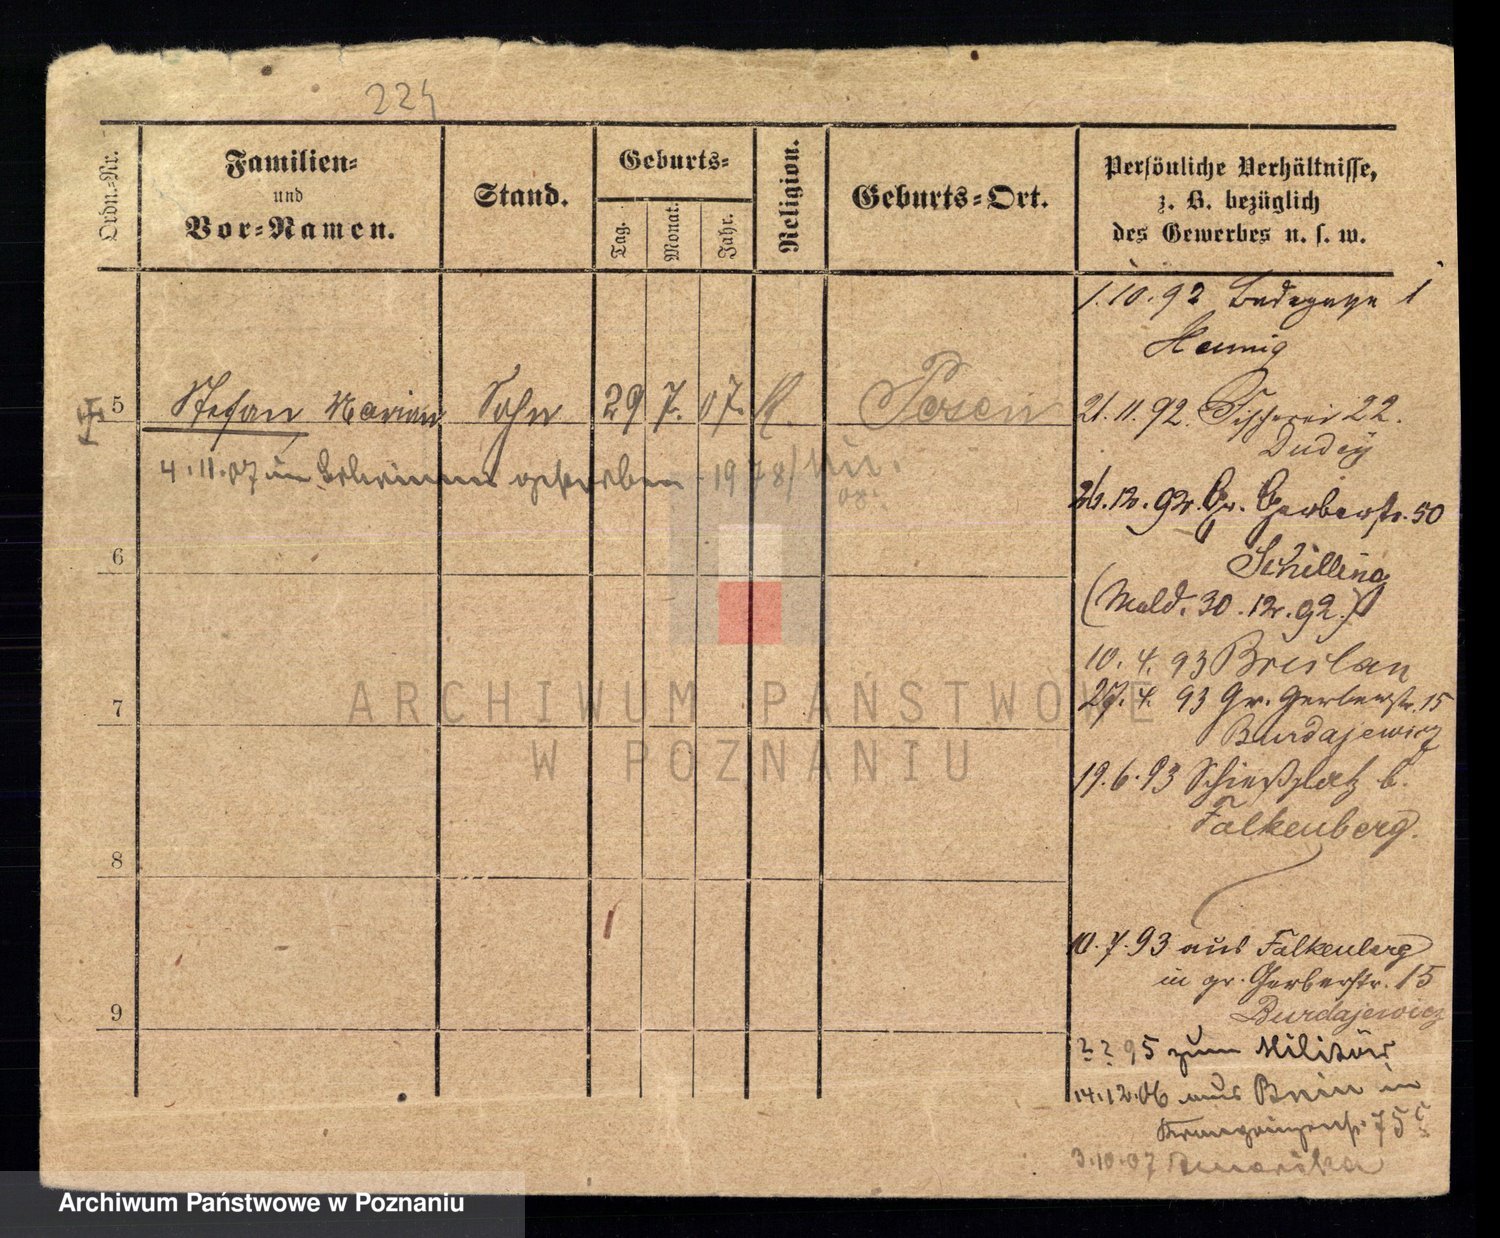 224
Ordn.-Nr.
Familien-
und
Vor-Namen.
Stand.
Geburts-
Tag.
Monat.
Jahr.
Religion.
Geburts-Ort.
Persönliche Verhältnisse,
z. B. bezüglich
des Gewerbes u. s. w.
1.10.92 1
Hennig
5 Stefan Marian Sohn 29 7. 07. K. Posen
4.11.07 in gestorben 1978/
08.
21.11.92. Fischerei 22.
Dudey
12.92. Gr. Gerberstr. 50
Schilling
(Meld. 30.12.92.)
6
10.4.93 Breslau
27.4.93 Gr. Gerberstr. 15
Burdajewicz
7
19.6.93 Schießplatz b.
Falkenberg.
8
10.7.93 aus Falkenberg
in gr. Gerberstr. 15
Burdajewicz
9
? ? 95 zum Militär
14.12.06 aus in
75
3.10.07
ARCHIWUM PAŃSTWOWE
W POZNANIU
Archiwum Państwowe w Poznaniu